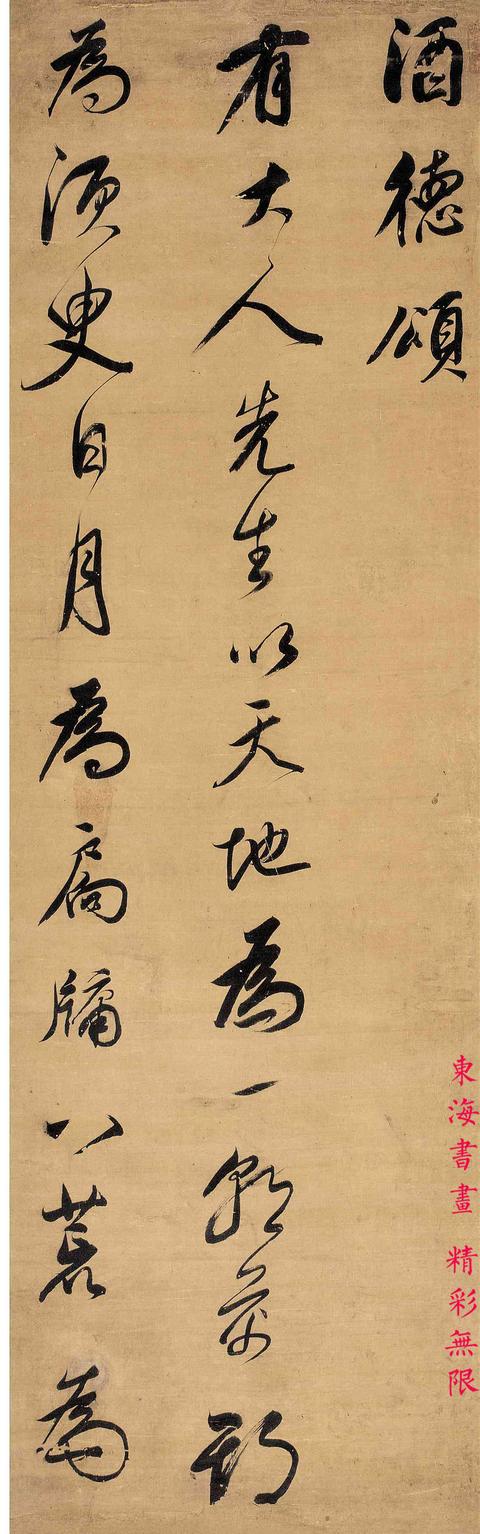 酒德頌
有大人先生以天地為一朝萬期
為須臾日月為扃牖八荒為
東海書畫 精彩無限